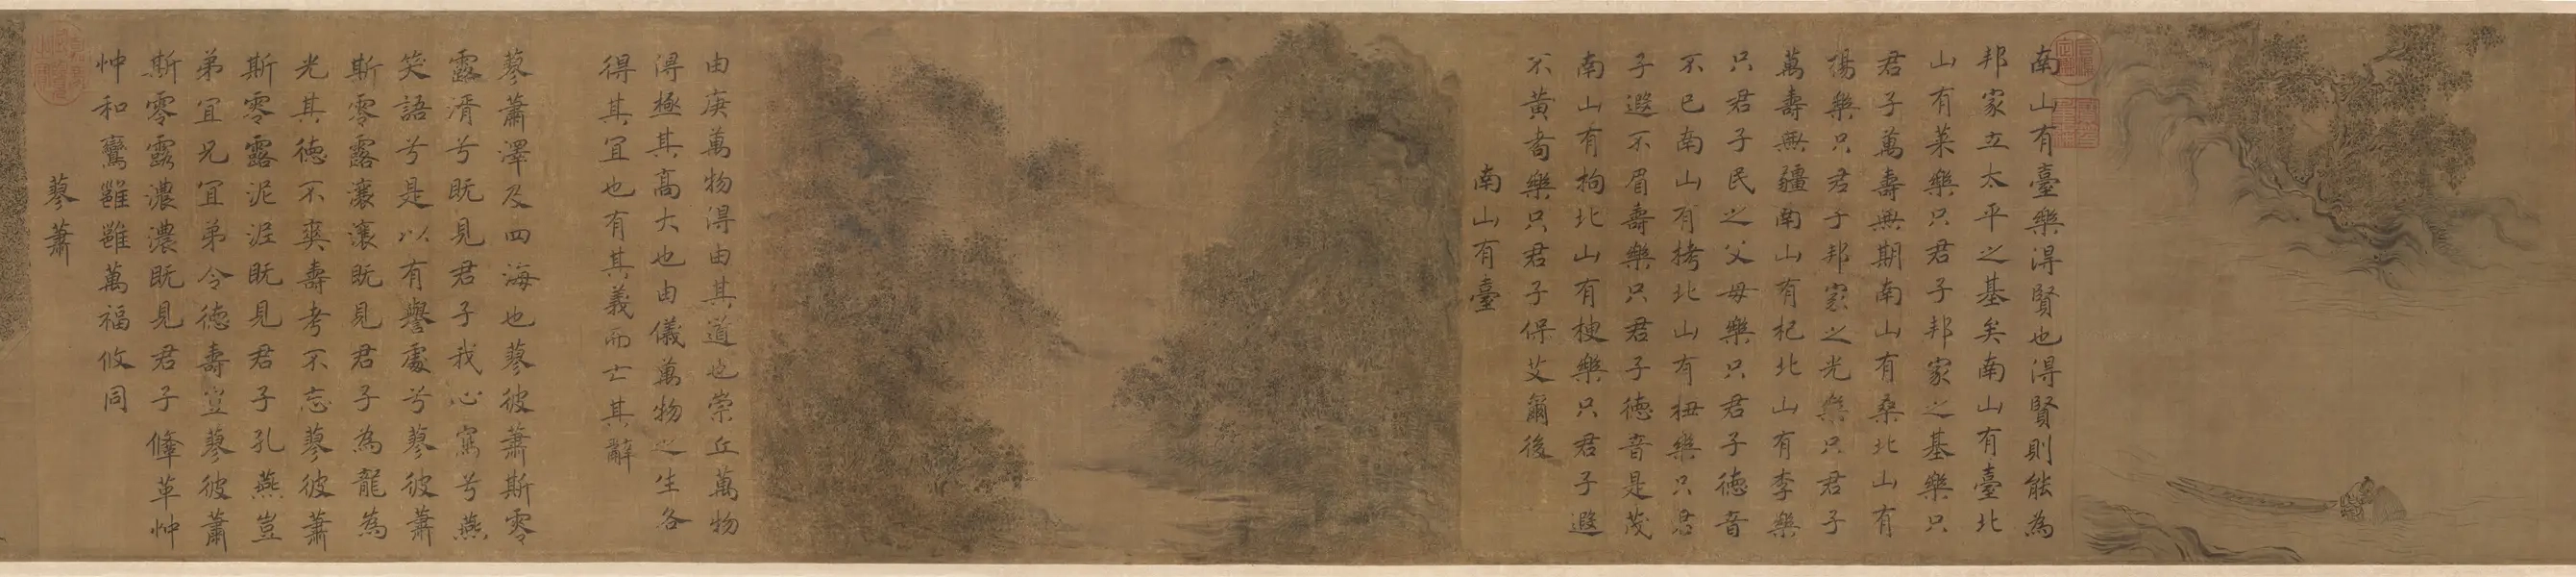 南山有臺樂得賢也得賢則能為
邦家立太平之基矣南山有臺北
山有萊樂只君子邦家之基樂只
君子萬壽無期南山有桑北山有
楊樂只君子邦家之光樂只君子
萬壽無疆南山有杞北山有李樂
只君子民之父母樂只君子徳音
不已南山有栲北山有杻樂只君
子遐不眉壽樂只君子徳音是茂
南山有枸北山有楰樂只君子遐
不黃耇樂只君子保艾爾後
南山有臺
由庚萬物得由其道也崇丘萬物
得極其高大也由儀萬物之生各
得其宜也有其義而亡其辭
蓼蕭澤及四海也蓼彼蕭斯零
露湑兮既見君子我心寫兮燕
笑語兮是以有譽處兮蓼彼蕭
斯零露瀼瀼既見君子為龍為
光其徳不爽壽考不忘蓼彼蕭
斯零露泥泥既見君子孔燕豈
弟宜兄宜弟令徳壽豈蓼彼蕭
斯零露濃濃既見君子鞗革忡
忡和鸞雝雝萬福攸同
蓼蕭